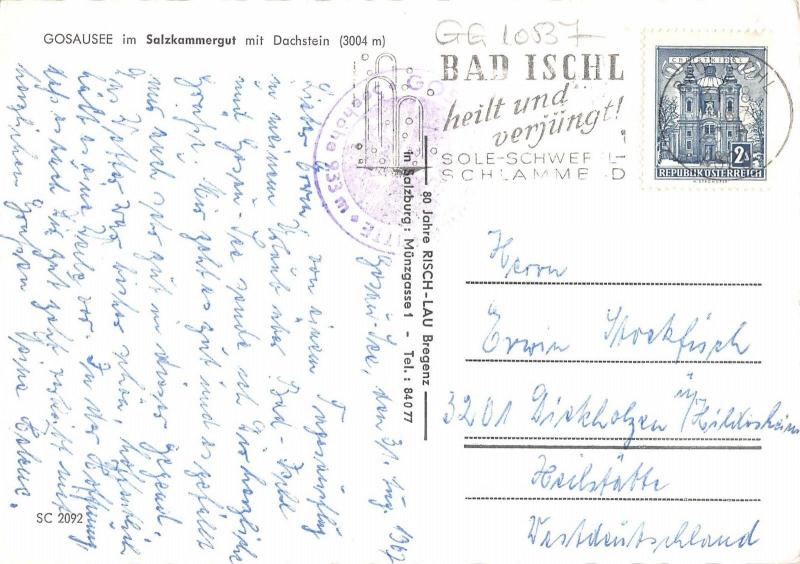 GOSAUSEE im Salzkammergut mit Dachstein (3004 m)
GG 10537
BAD ISCHL
heilt und
verjüngt!
SOLE-SCHWEFEL-
SCHLAMMBAD
CHRISTKINDL
2S
REPUBLIK ÖSTERREICH
Seehöhe 933 m
Gosau-See, den 31. Aug. 1967
Lieber Erwin!
von einem
in meinem Urlaub über Bad-Ischl
und Gosau-See sende ich Dir herzliche
Grüße. Mir geht es gut und es gefällt
mir auch sehr gut in dieser Gegend.
Das Wetter war bisher schön, hoffentlich
hält es eine Weile vor. In der Hoffnung
daß es auch Dir gut geht verbleibt mit
herzlichen Grüßen Deine
80 Jahre RISCH-LAU Bregenz
in Salzburg: Münzgasse 1 - Tel.: 84 0 77
Herrn
Erwin Stockfisch
3201 Diekholzen ü/Hildesheim
Heilstätte
Westdeutschland
SC 2092